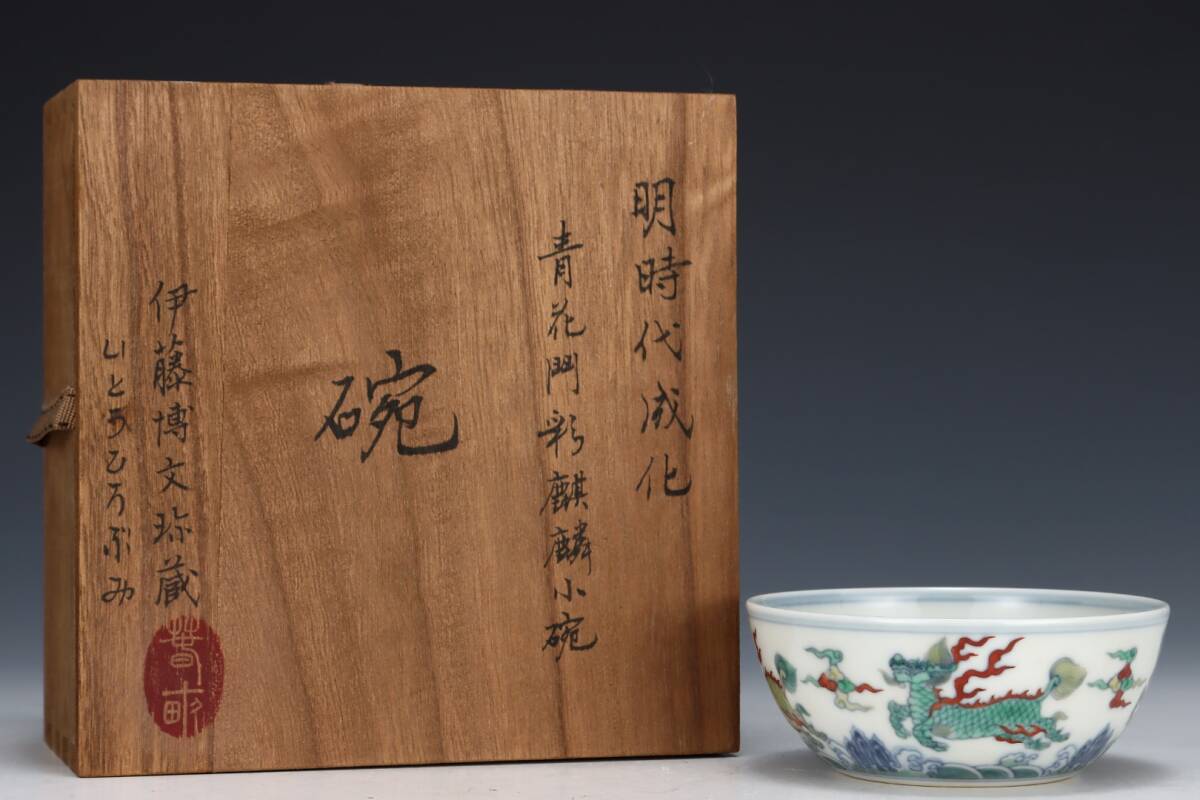 明時代成化
青花鬥彩麒麟小碗
碗
伊藤博文珍蔵
いとうひろぶみ
春畝